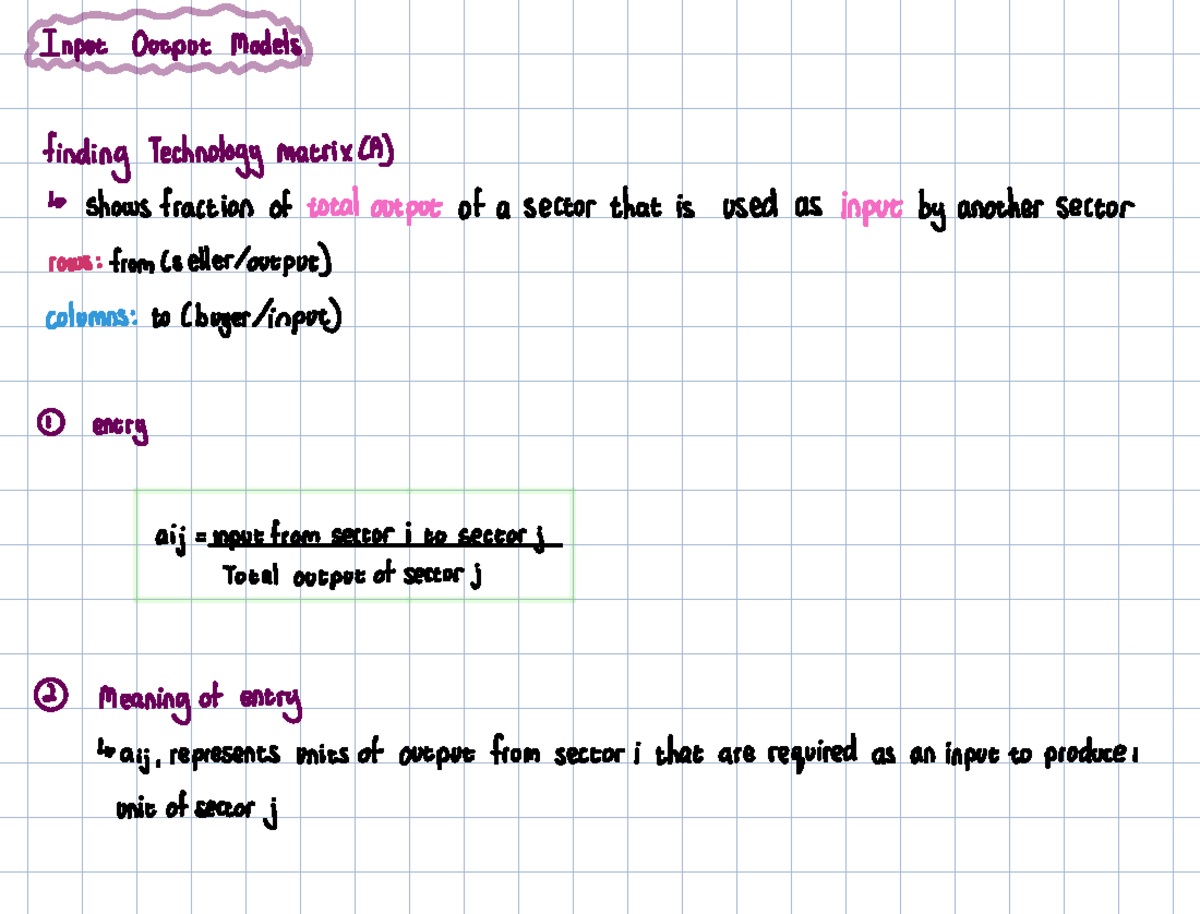 Input Output Models
finding Technology matrix (A)
↳ shows fraction of total output of a sector that is used as input by another sector
rows: from (seller/output)
columns: to (buyer/input)
① entry
aij = input from sector i to sector j
Total output of sector j
② Meaning of entry
↳ aij, represents units of output from sector i that are required as an input to produce 1
unit of sector j